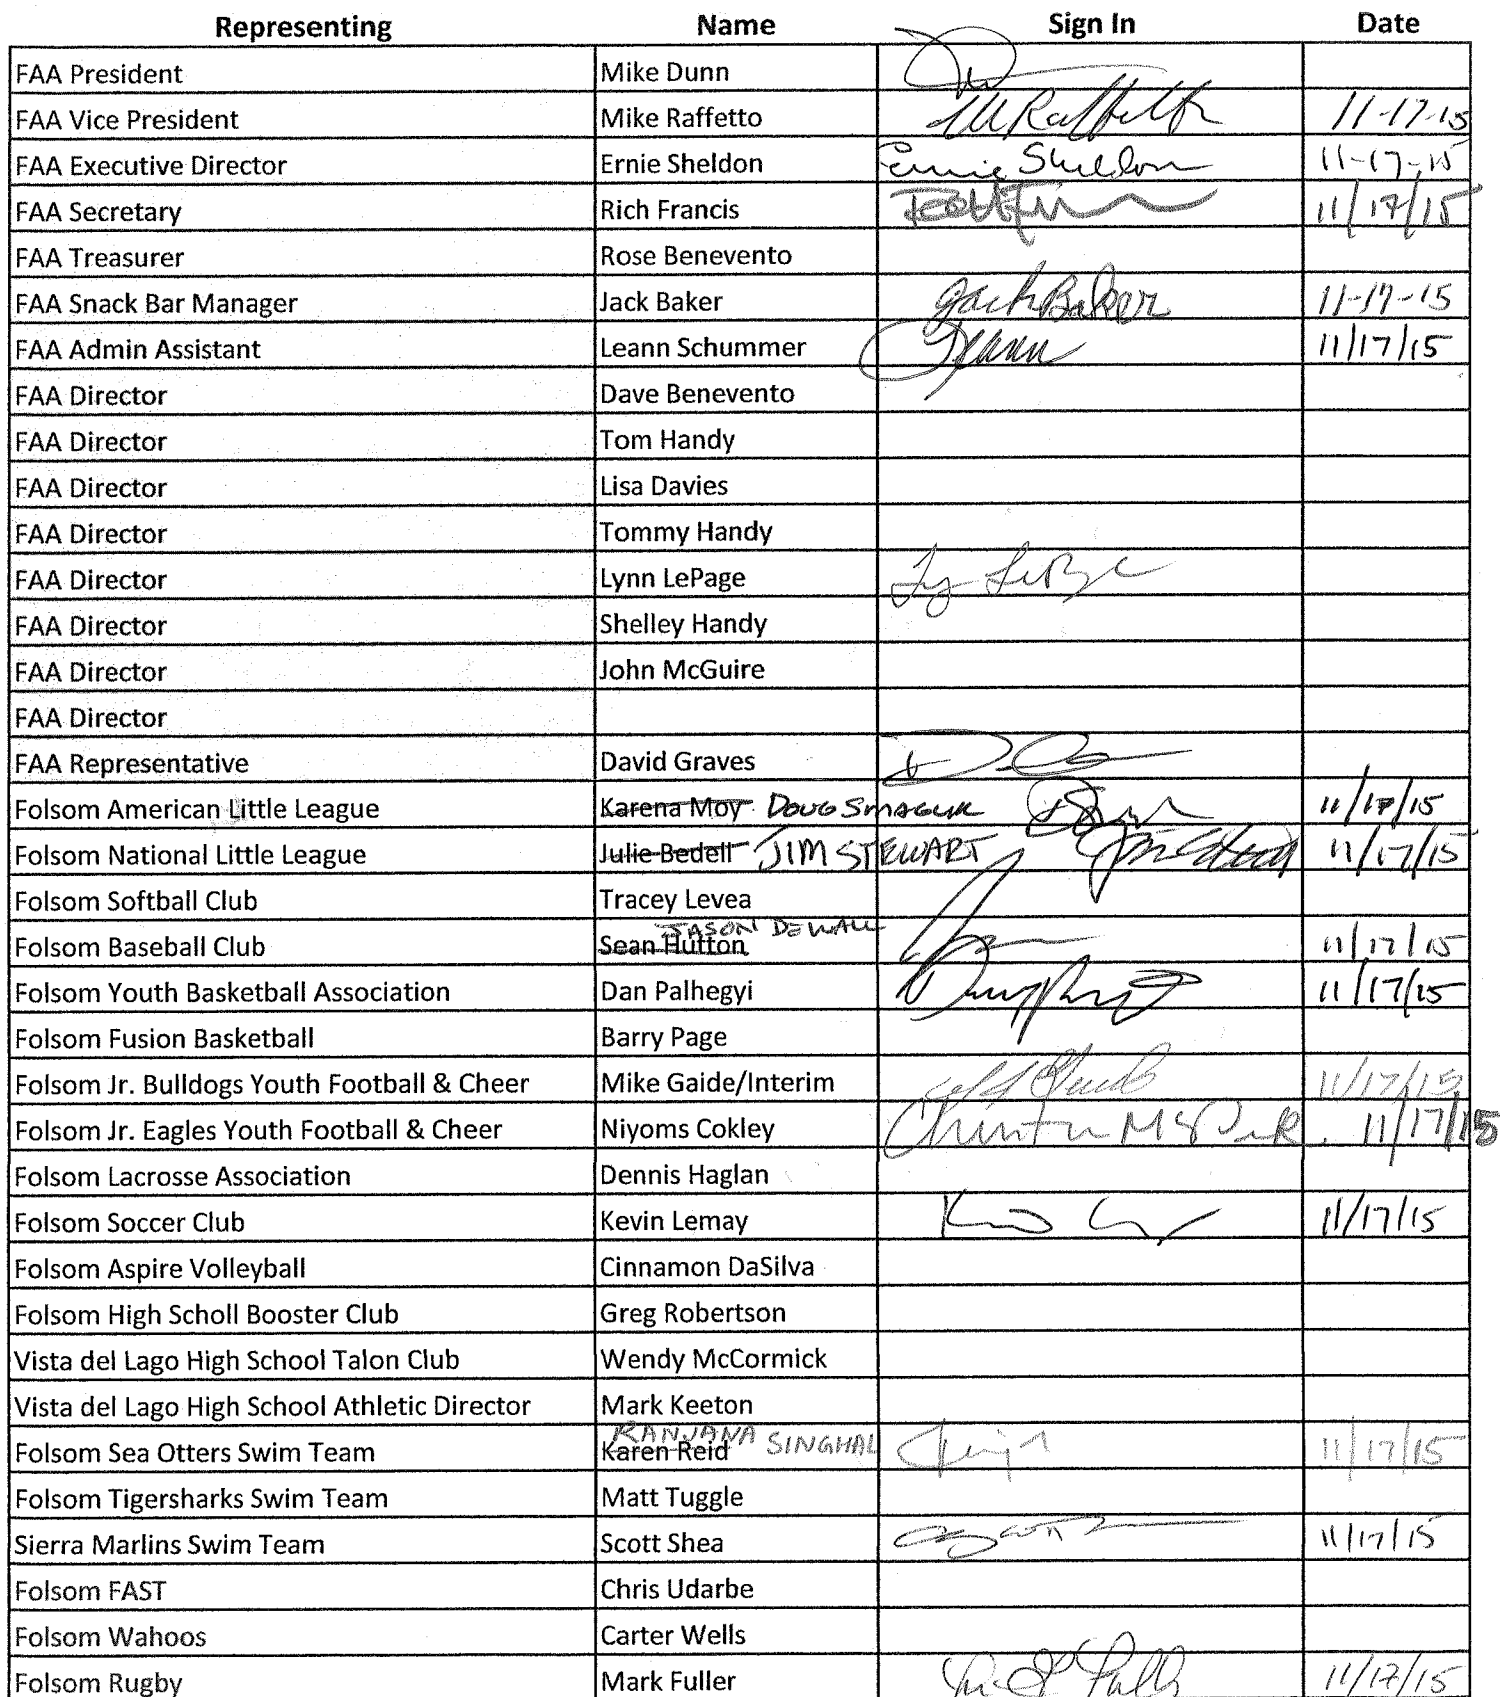 Representing Name Sign In Date
FAA President Mike Dunn
FAA Vice President Mike Raffetto M Raffetto 11-17-15
FAA Executive Director Ernie Sheldon Ernie Sheldon 11-17-15
FAA Secretary Rich Francis 11/17/15
FAA Treasurer Rose Benevento
FAA Snack Bar Manager Jack Baker Jack Baker 11-17-15
FAA Admin Assistant Leann Schummer Leann 11/17/15
FAA Director Dave Benevento
FAA Director Tom Handy
FAA Director Lisa Davies
FAA Director Tommy Handy
FAA Director Lynn LePage
FAA Director Shelley Handy
FAA Director John McGuire
FAA Director
FAA Representative David Graves
Folsom American Little League Karena Moy DOUG SMAGLIK 11/17/15
Folsom National Little League Julie Bedell JIM STEWART 11/17/15
Folsom Softball Club Tracey Levea
JASON DEWALL
Folsom Baseball Club Sean Hutton 11/17/15
Folsom Youth Basketball Association Dan Palhegyi 11/17/15
Folsom Fusion Basketball Barry Page
Folsom Jr. Bulldogs Youth Football & Cheer Mike Gaide/Interim 11/17/15
Folsom Jr. Eagles Youth Football & Cheer Niyoms Cokley 11/17/15
Folsom Lacrosse Association Dennis Haglan
Folsom Soccer Club Kevin Lemay 11/17/15
Folsom Aspire Volleyball Cinnamon DaSilva
Folsom High Scholl Booster Club Greg Robertson
Vista del Lago High School Talon Club Wendy McCormick
Vista del Lago High School Athletic Director Mark Keeton
RANJANA SINGHAL
Folsom Sea Otters Swim Team Karen Reid 11/17/15
Folsom Tigersharks Swim Team Matt Tuggle
Sierra Marlins Swim Team Scott Shea 11/17/15
Folsom FAST Chris Udarbe
Folsom Wahoos Carter Wells
Folsom Rugby Mark Fuller 11/17/15